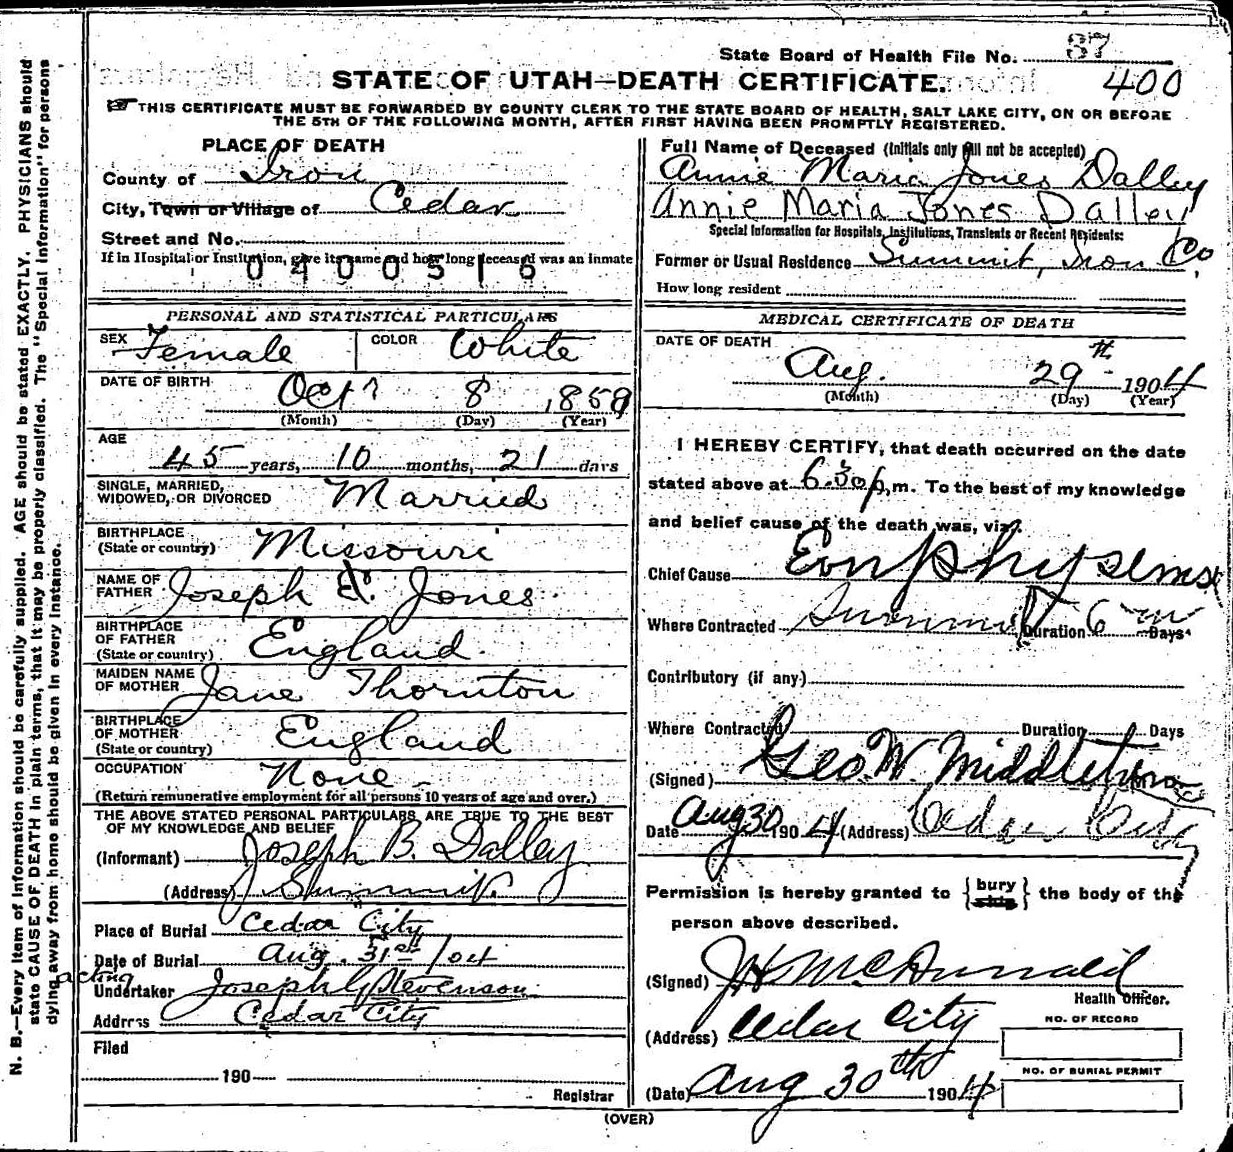 State Board of Health File No. 87
400
STATE OF UTAH—DEATH CERTIFICATE.
THIS CERTIFICATE MUST BE FORWARDED BY COUNTY CLERK TO THE STATE BOARD OF HEALTH, SALT LAKE CITY, ON OR BEFORE
THE 5TH OF THE FOLLOWING MONTH, AFTER FIRST HAVING BEEN PROMPTLY REGISTERED.
PLACE OF DEATH
County of Iron
City, Town or Village of Cedar
Street and No.
If in Hospital or Institution, give its name and how long deceased was an inmate
0400516
PERSONAL AND STATISTICAL PARTICULARS
SEX Female COLOR White
DATE OF BIRTH Oct 8 1859
(Month) (Day) (Year)
AGE
45 years, 10 months, 21 days
SINGLE, MARRIED,
WIDOWED, OR DIVORCED Married
BIRTHPLACE
(State or country) Missouri
NAME OF
FATHER Joseph Jones
BIRTHPLACE
OF FATHER
(State or country) England
MAIDEN NAME
OF MOTHER Jane Thornton
BIRTHPLACE
OF MOTHER
(State or country) England
OCCUPATION None
(Return remunerative employment for all persons 10 years of age and over.)
THE ABOVE STATED PERSONAL PARTICULARS ARE TRUE TO THE BEST
OF MY KNOWLEDGE AND BELIEF
(Informant) Joseph B. Dalley
(Address) Summit
Place of Burial Cedar City
Date of Burial Aug. 31st /04
acting
Undertaker Joseph G Stevenson
Address Cedar City
Filed
190
Registrar
Full Name of Deceased (Initials only will not be accepted)
Annie Maria Jones Dalley
Annie Maria Jones Dalley
Special Information for Hospitals, Institutions, Transients or Recent Residents:
Former or Usual Residence Summit, Iron Co.
How long resident
MEDICAL CERTIFICATE OF DEATH
DATE OF DEATH
Aug. 29th 1904
(Month) (Day) (Year)
I HEREBY CERTIFY, that death occurred on the date
stated above at 6.30 p.m. To the best of my knowledge
and belief cause of the death was, viz:
Chief Cause Emphysema
Where Contracted Summit Duration 6 m Days
Contributory (if any)
Where Contracted Duration Days
(Signed) Geo. W. Middleton
Date Aug 30 1904 (Address) Cedar City
Permission is hereby granted to {bury ship} the body of the
person above described.
(Signed) J H McDonald
Health Officer.
(Address) Cedar City
NO. OF RECORD
NO. OF BURIAL PERMIT
(Date) Aug 30th 1904
(OVER)
N. B.—Every item of information should be carefully supplied. AGE should be stated EXACTLY. PHYSICIANS should
state CAUSE OF DEATH in plain terms, that it may be properly classified. The "Special Information" for persons
dying away from home should be given in every instance.